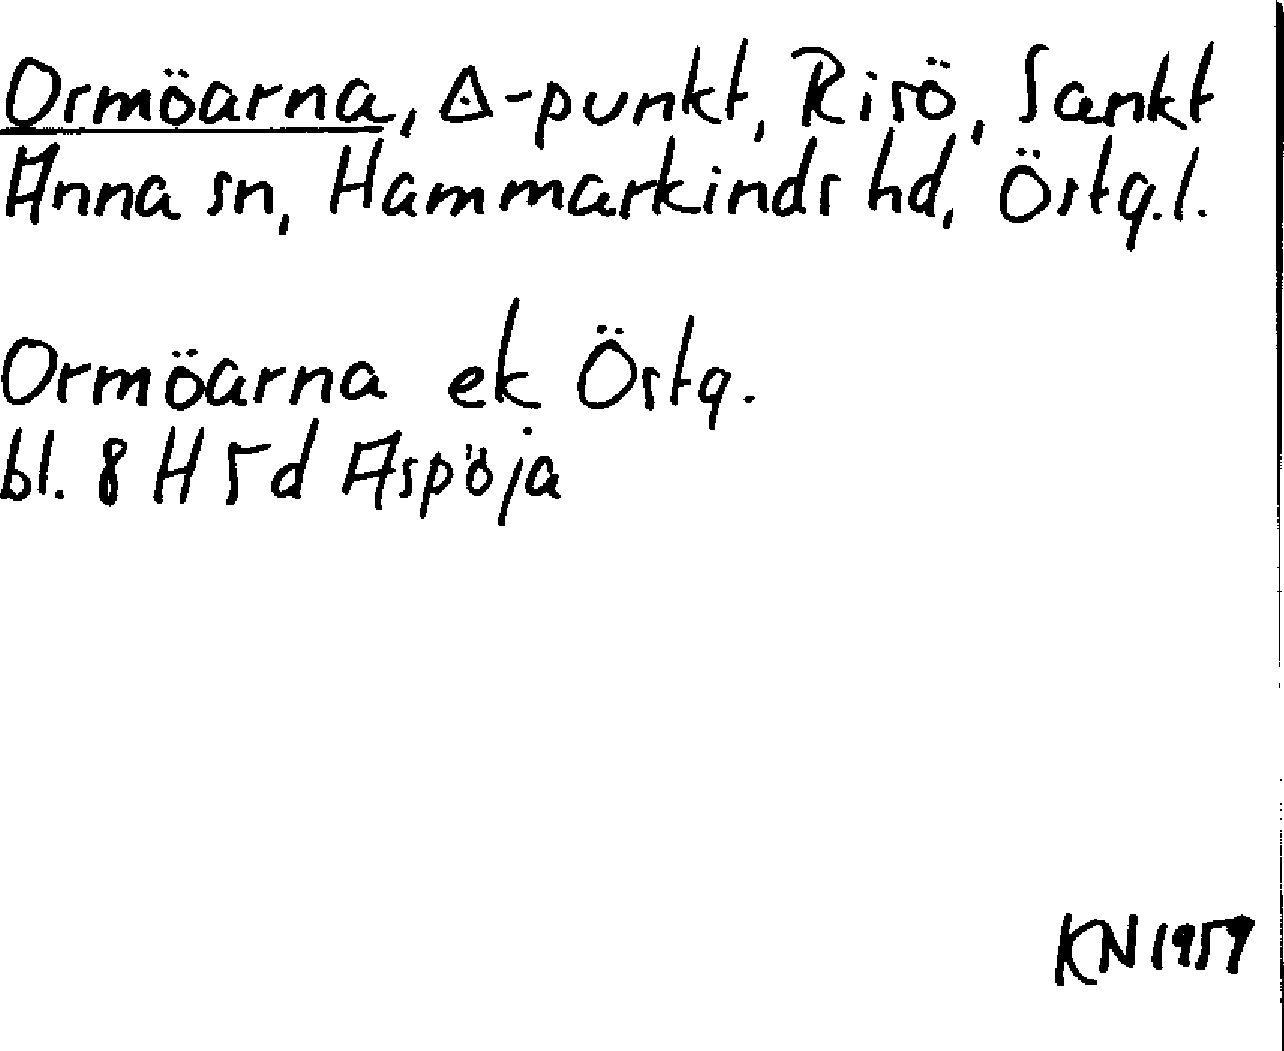 Ormöarna, △-punkt, Risö, Sankt
Anna sn, Hammarkinds hd, Östg.l.
Ormöarna ek Östg.
bl. 8 H 5 d Aspöja
KN 1959